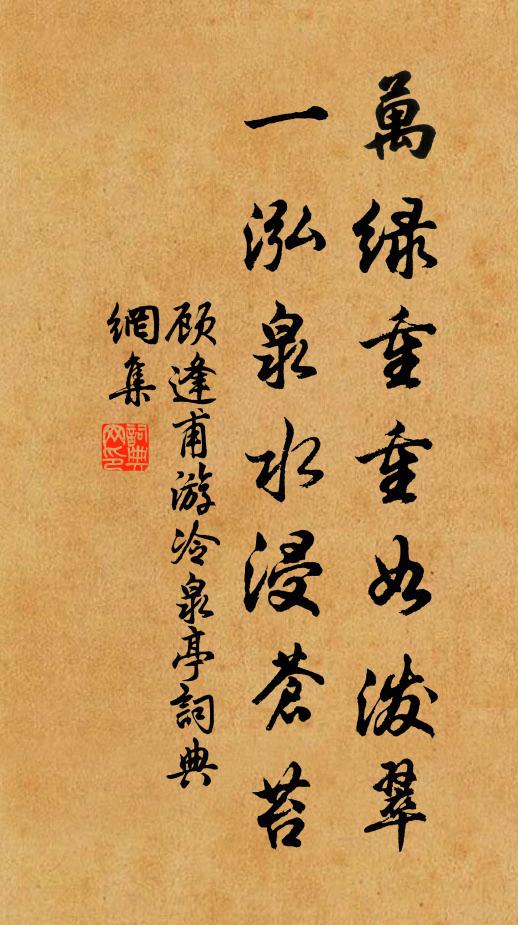 萬緑重重如潑翠
一泓泉水浸蒼苔
顾逢甫游冷泉亭詞典
網集
詞典網印